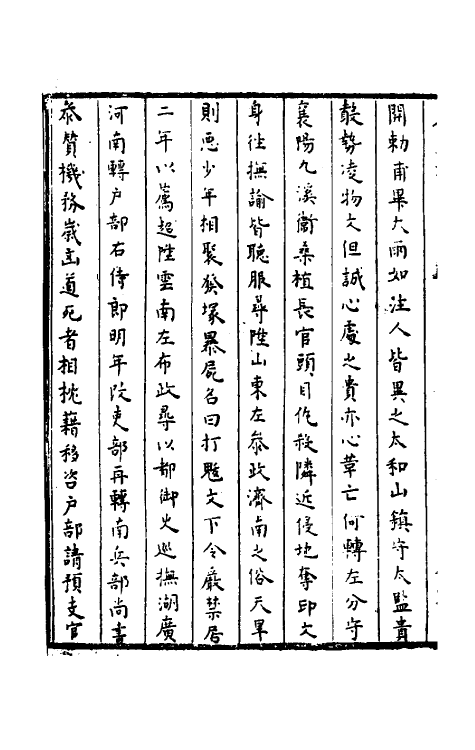 開勅甫畢大雨如注人皆異之太和山鎮守太監貴
殽勢凌物文但誠心處之貴亦心革亡何轉左分守
襄陽九溪衛桑植長官頭目仇殺隣近侵地奪印文
身往撫諭皆聽服尋陞山東左叅政濟南之俗天旱
則惡少年相聚發塚暴屍名曰打魃文下令嚴禁居
二年以薦超陞雲南左布政尋以都御史巡撫湖廣
河南轉户部右侍郎明年改吏部再轉南兵部尚書
叅贊機務歲凶道死者相枕藉移咨户部請預支官